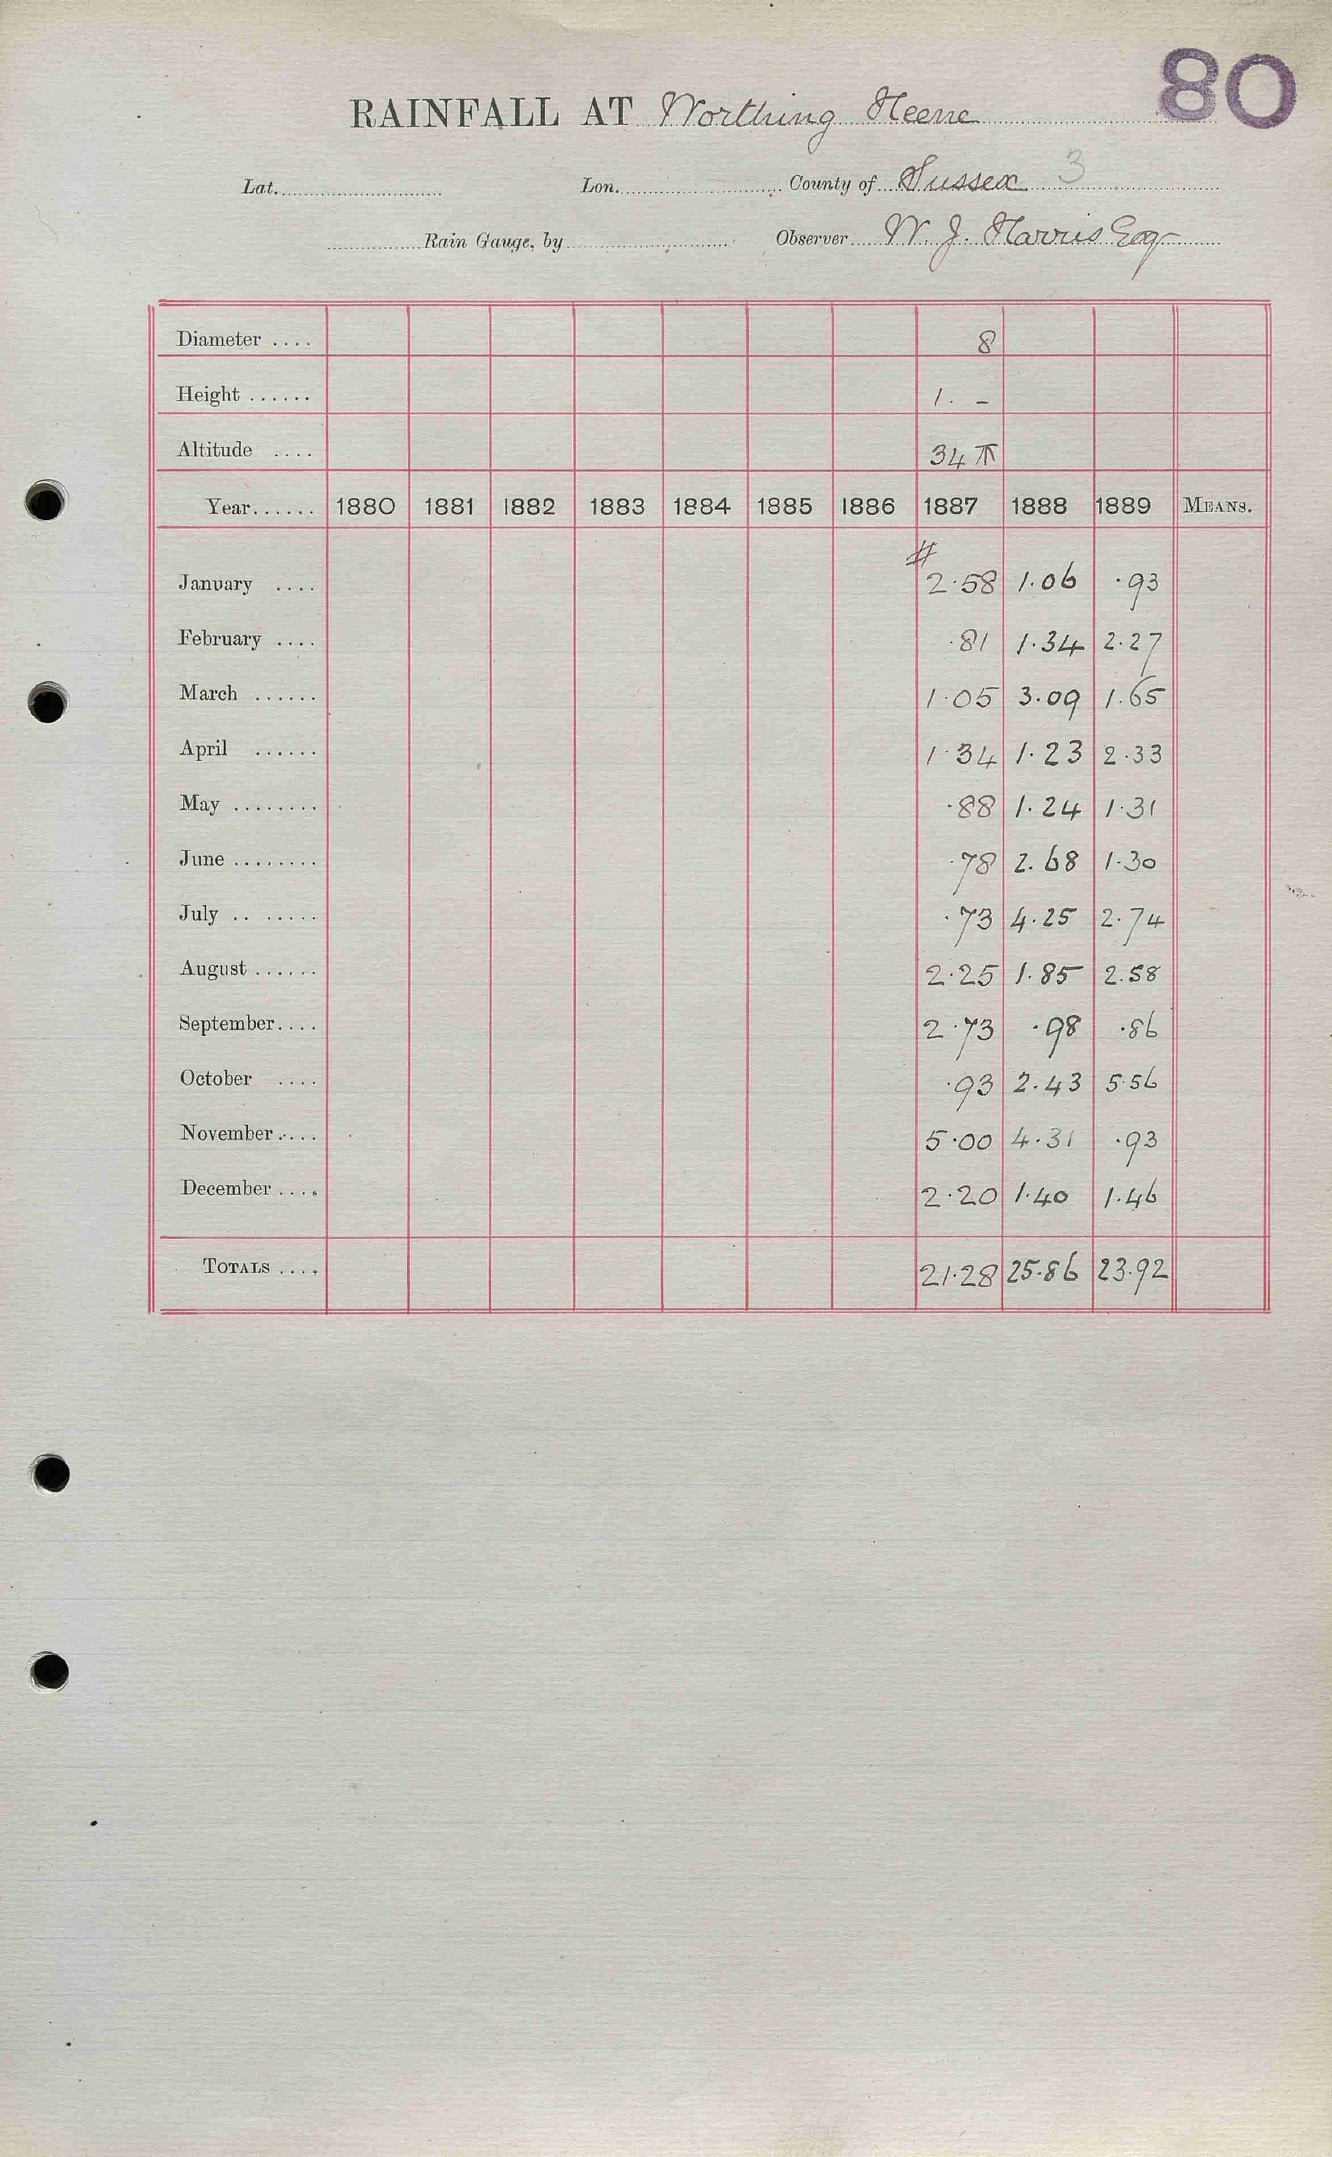 80
RAINFALL AT Worthing Heene
Lat. Lon. County of Sussex 3
Rain Gauge, by Observer W. J. Harris Esq
Diameter .... 8
Height ...... 1. -
Altitude .... 34
Year...... 1880 1881 1882 1883 1884 1885 1886 1887 1888 1889 MEANS.
#
January .... 2.58 1.06 .93
February .... .81 1.34 2.27
March ...... 1.05 3.09 1.65
April ...... 1.34 1.23 2.33
May ........ .88 1.24 1.31
June ........ .78 2.68 1.30
July .. ...... .73 4.25 2.74
August ...... 2.25 1.85 2.58
September.... 2.73 .98 .86
October .... .93 2.43 5.56
November..... 5.00 4.31 .93
December .... 2.20 1.40 1.46
TOTALS .... 21.28 25.86 23.92